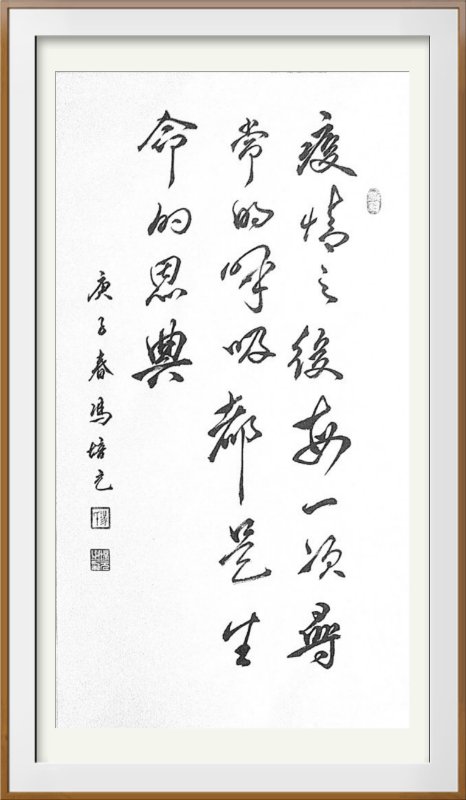 疫情之後每一次尋
常的呼吸都是生
命的恩典
庚子春馮培元